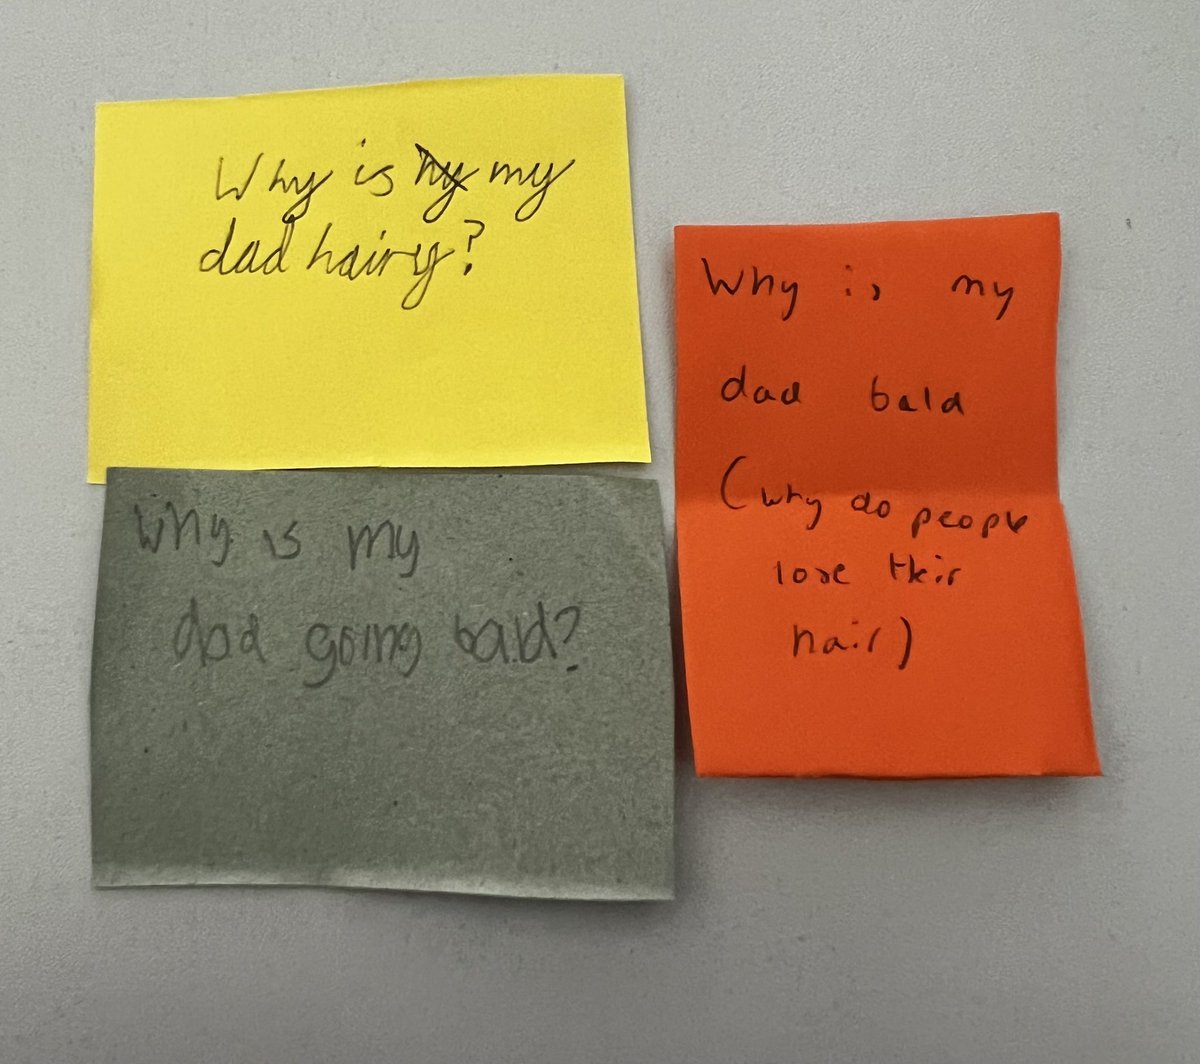 Why is my
dad hairy?
Why is my
dad going bald?
Why is my
dad bald
(why do people
lose their
hair)